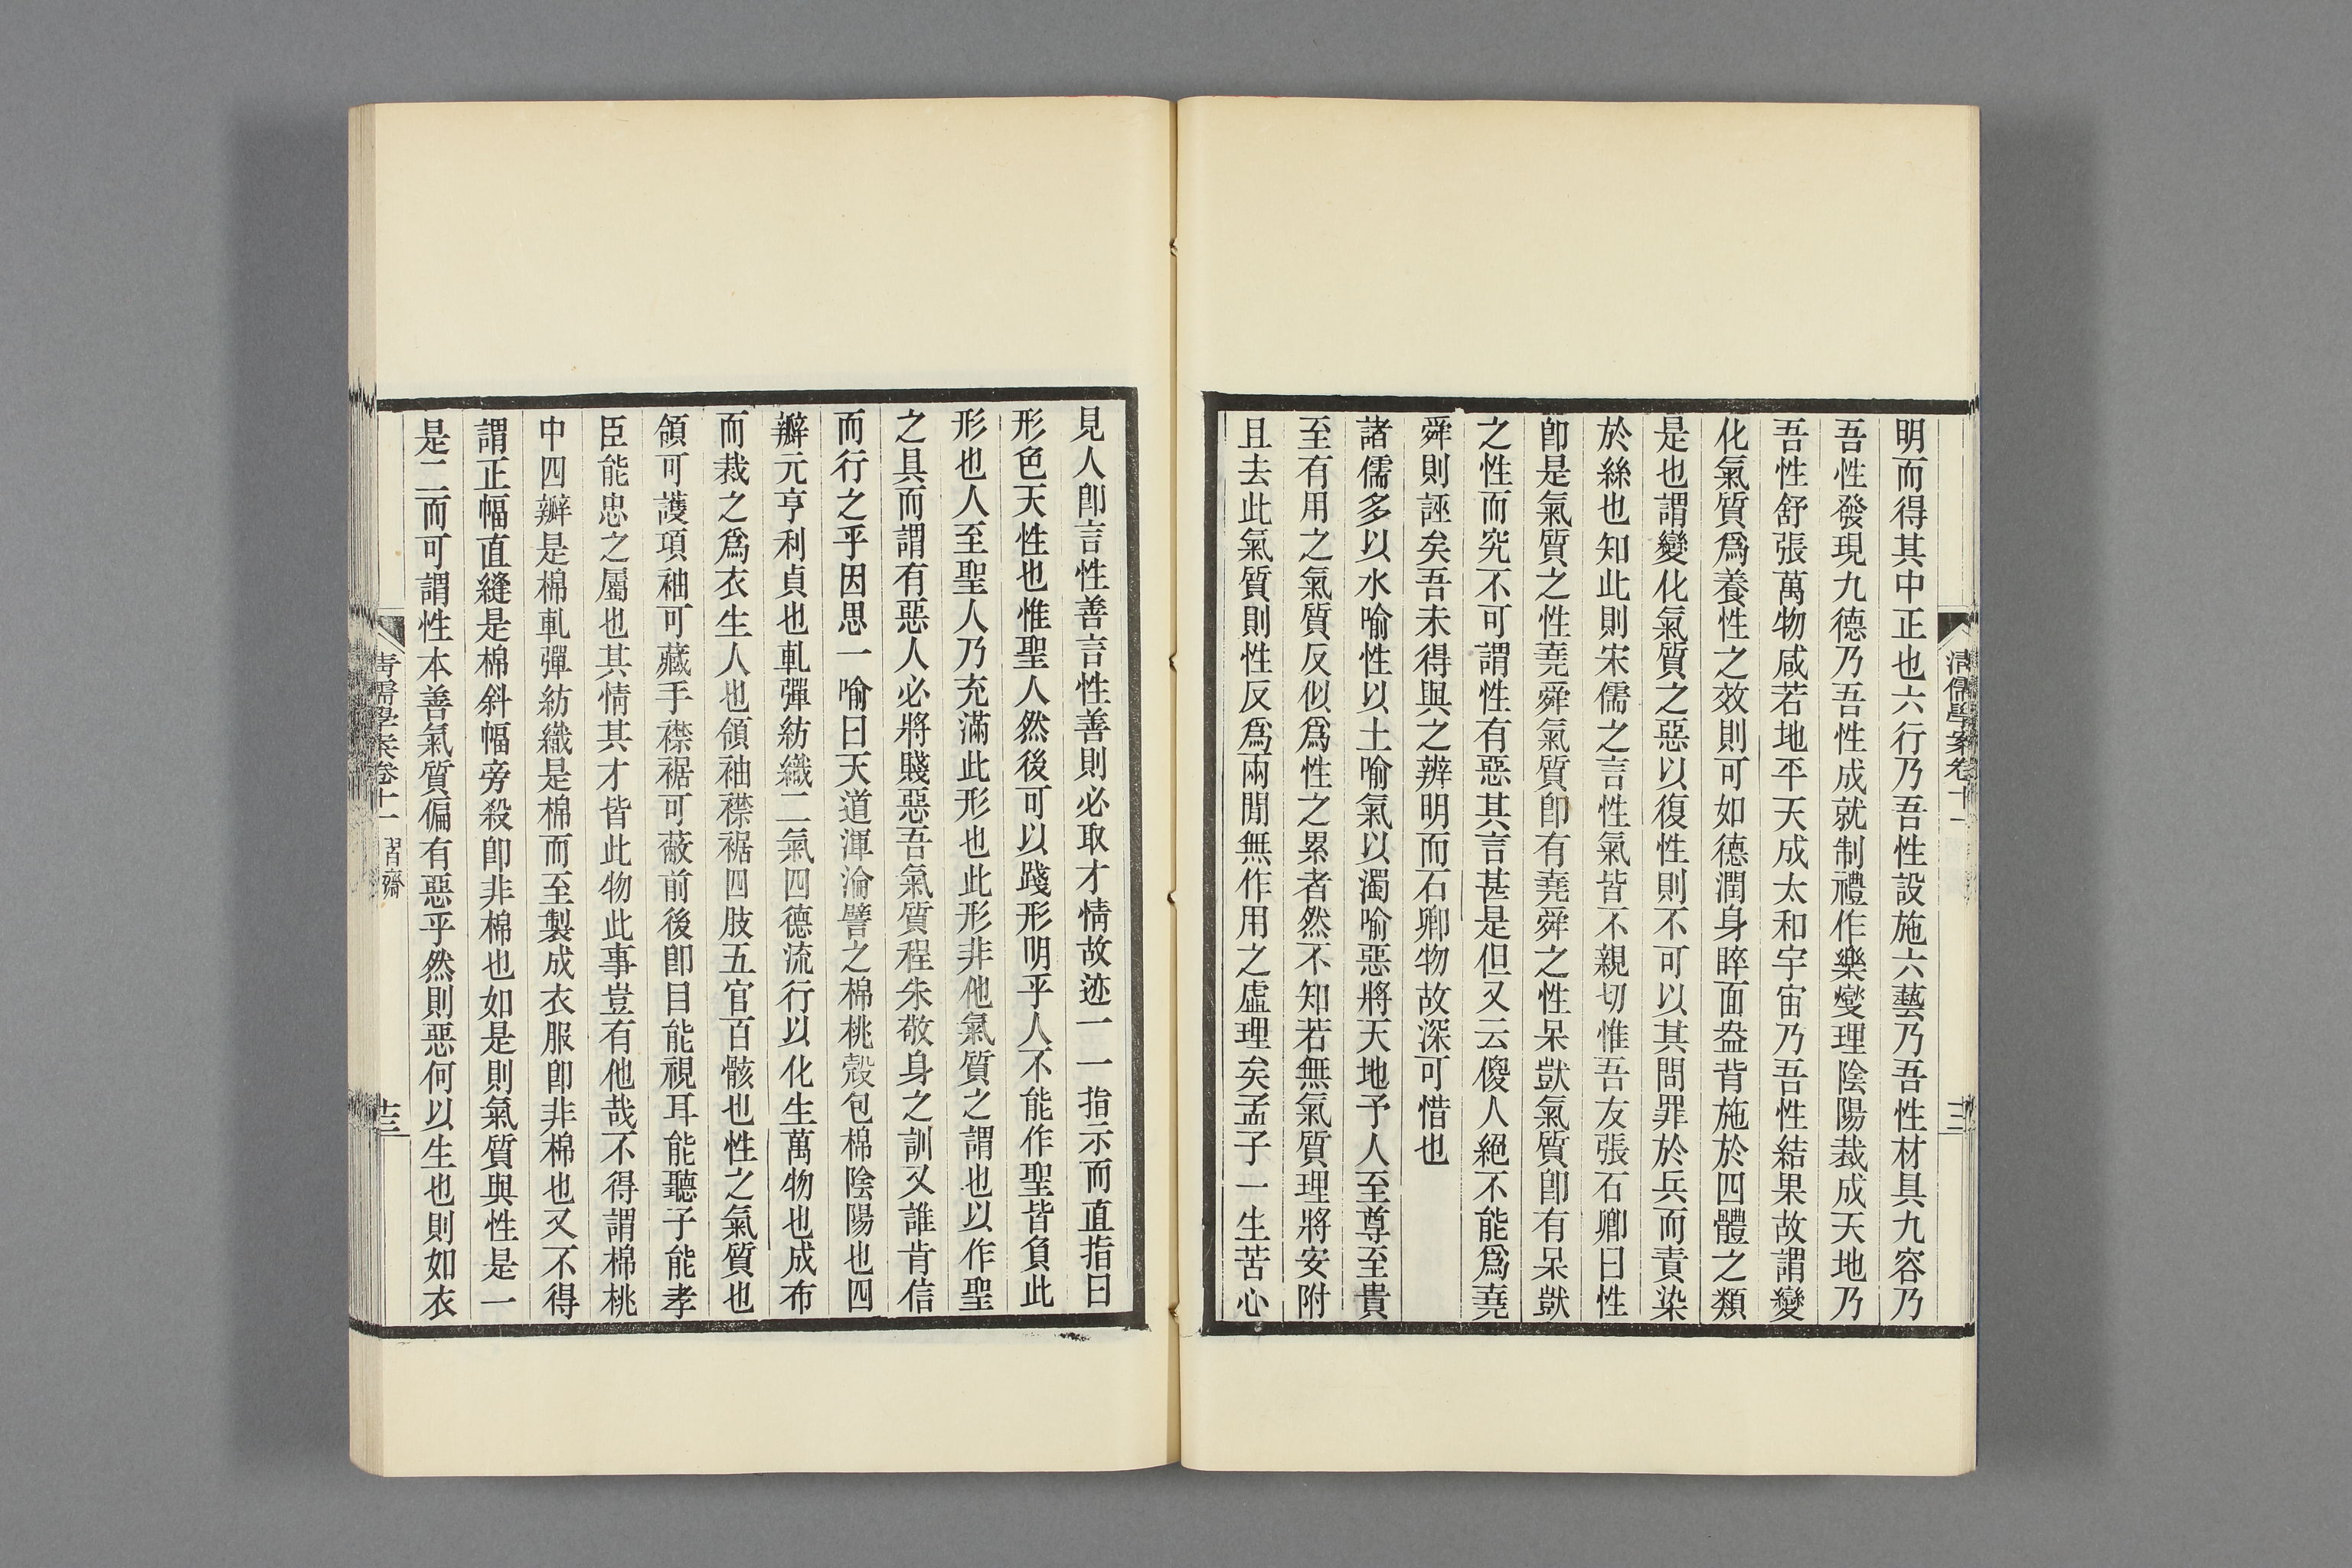 清儒學案卷十一
明而得其中正也六行乃吾性設施六藝乃吾性材具九容乃
吾性發現九德乃吾性成就制禮作樂燮理陰陽裁成天地乃
吾性舒張萬物咸若地平天成太和宇宙乃吾性結果故謂變
化氣質爲養性之效則可如德潤身睟面盎背施於四體之類
是也謂變化氣質之惡以復性則不可以其問罪於兵而責染
於絲也知此則宋儒之言性氣皆不親切惟吾友張石卿曰性
卽是氣質之性堯舜氣質卽有堯舜之性呆獃氣質卽有呆獃
之性而究不可謂性有惡其言甚是但又云傻人絕不能爲堯
舜則誣矣吾未得與之辨明而石卿物故深可惜也
諸儒多以水喻性以土喻氣以濁喻惡將天地予人至尊至貴
至有用之氣質反似爲性之累者然不知若無氣質理將安附
且去此氣質則性反爲兩閒無作用之虛理矣孟子一生苦心
見人卽言性善言性善則必取才情故迹一一指示而直指曰
形色天性也惟聖人然後可以踐形明乎人不能作聖皆負此
形也人至聖人乃充滿此形也此形非他氣質之謂也以作聖
之具而謂有惡人必將賤惡吾氣質程朱敬身之訓又誰肯信
而行之乎因思一喻曰天道渾淪譬之棉桃殼包棉陰陽也四
瓣元亨利貞也軋彈紡織二氣四德流行以化生萬物也成布
而裁之爲衣生人也領袖襟裾四肢五官百骸也性之氣質也
領可護項袖可藏手襟裾可蔽前後卽目能視耳能聽子能孝
臣能忠之屬也其情其才皆此物此事豈有他哉不得謂棉桃
中四瓣是棉軋彈紡織是棉而至製成衣服卽非棉也又不得
謂正幅直縫是棉斜幅旁殺卽非棉也如是則氣質與性是一
是二而可謂性本善氣質偏有惡乎然則惡何以生也則如衣
清儒學案卷十一 習齋 十三